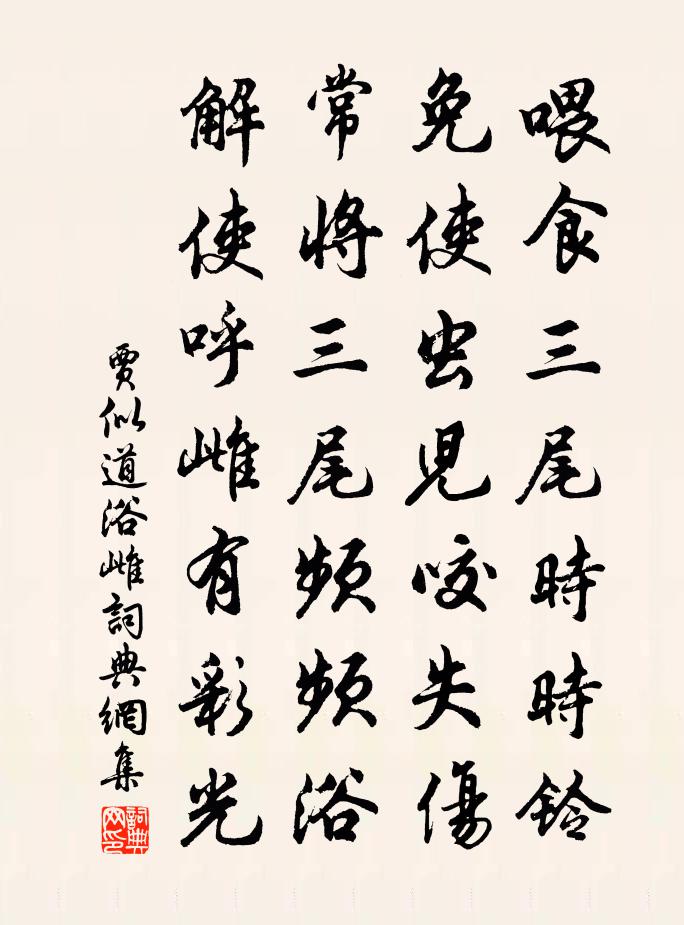 喂食三尾時時鈴
免使虫児咬失傷
常將三尾頻頻浴
解使呼雌有彩光
賈似道浴雌詞典網集
詞典网印